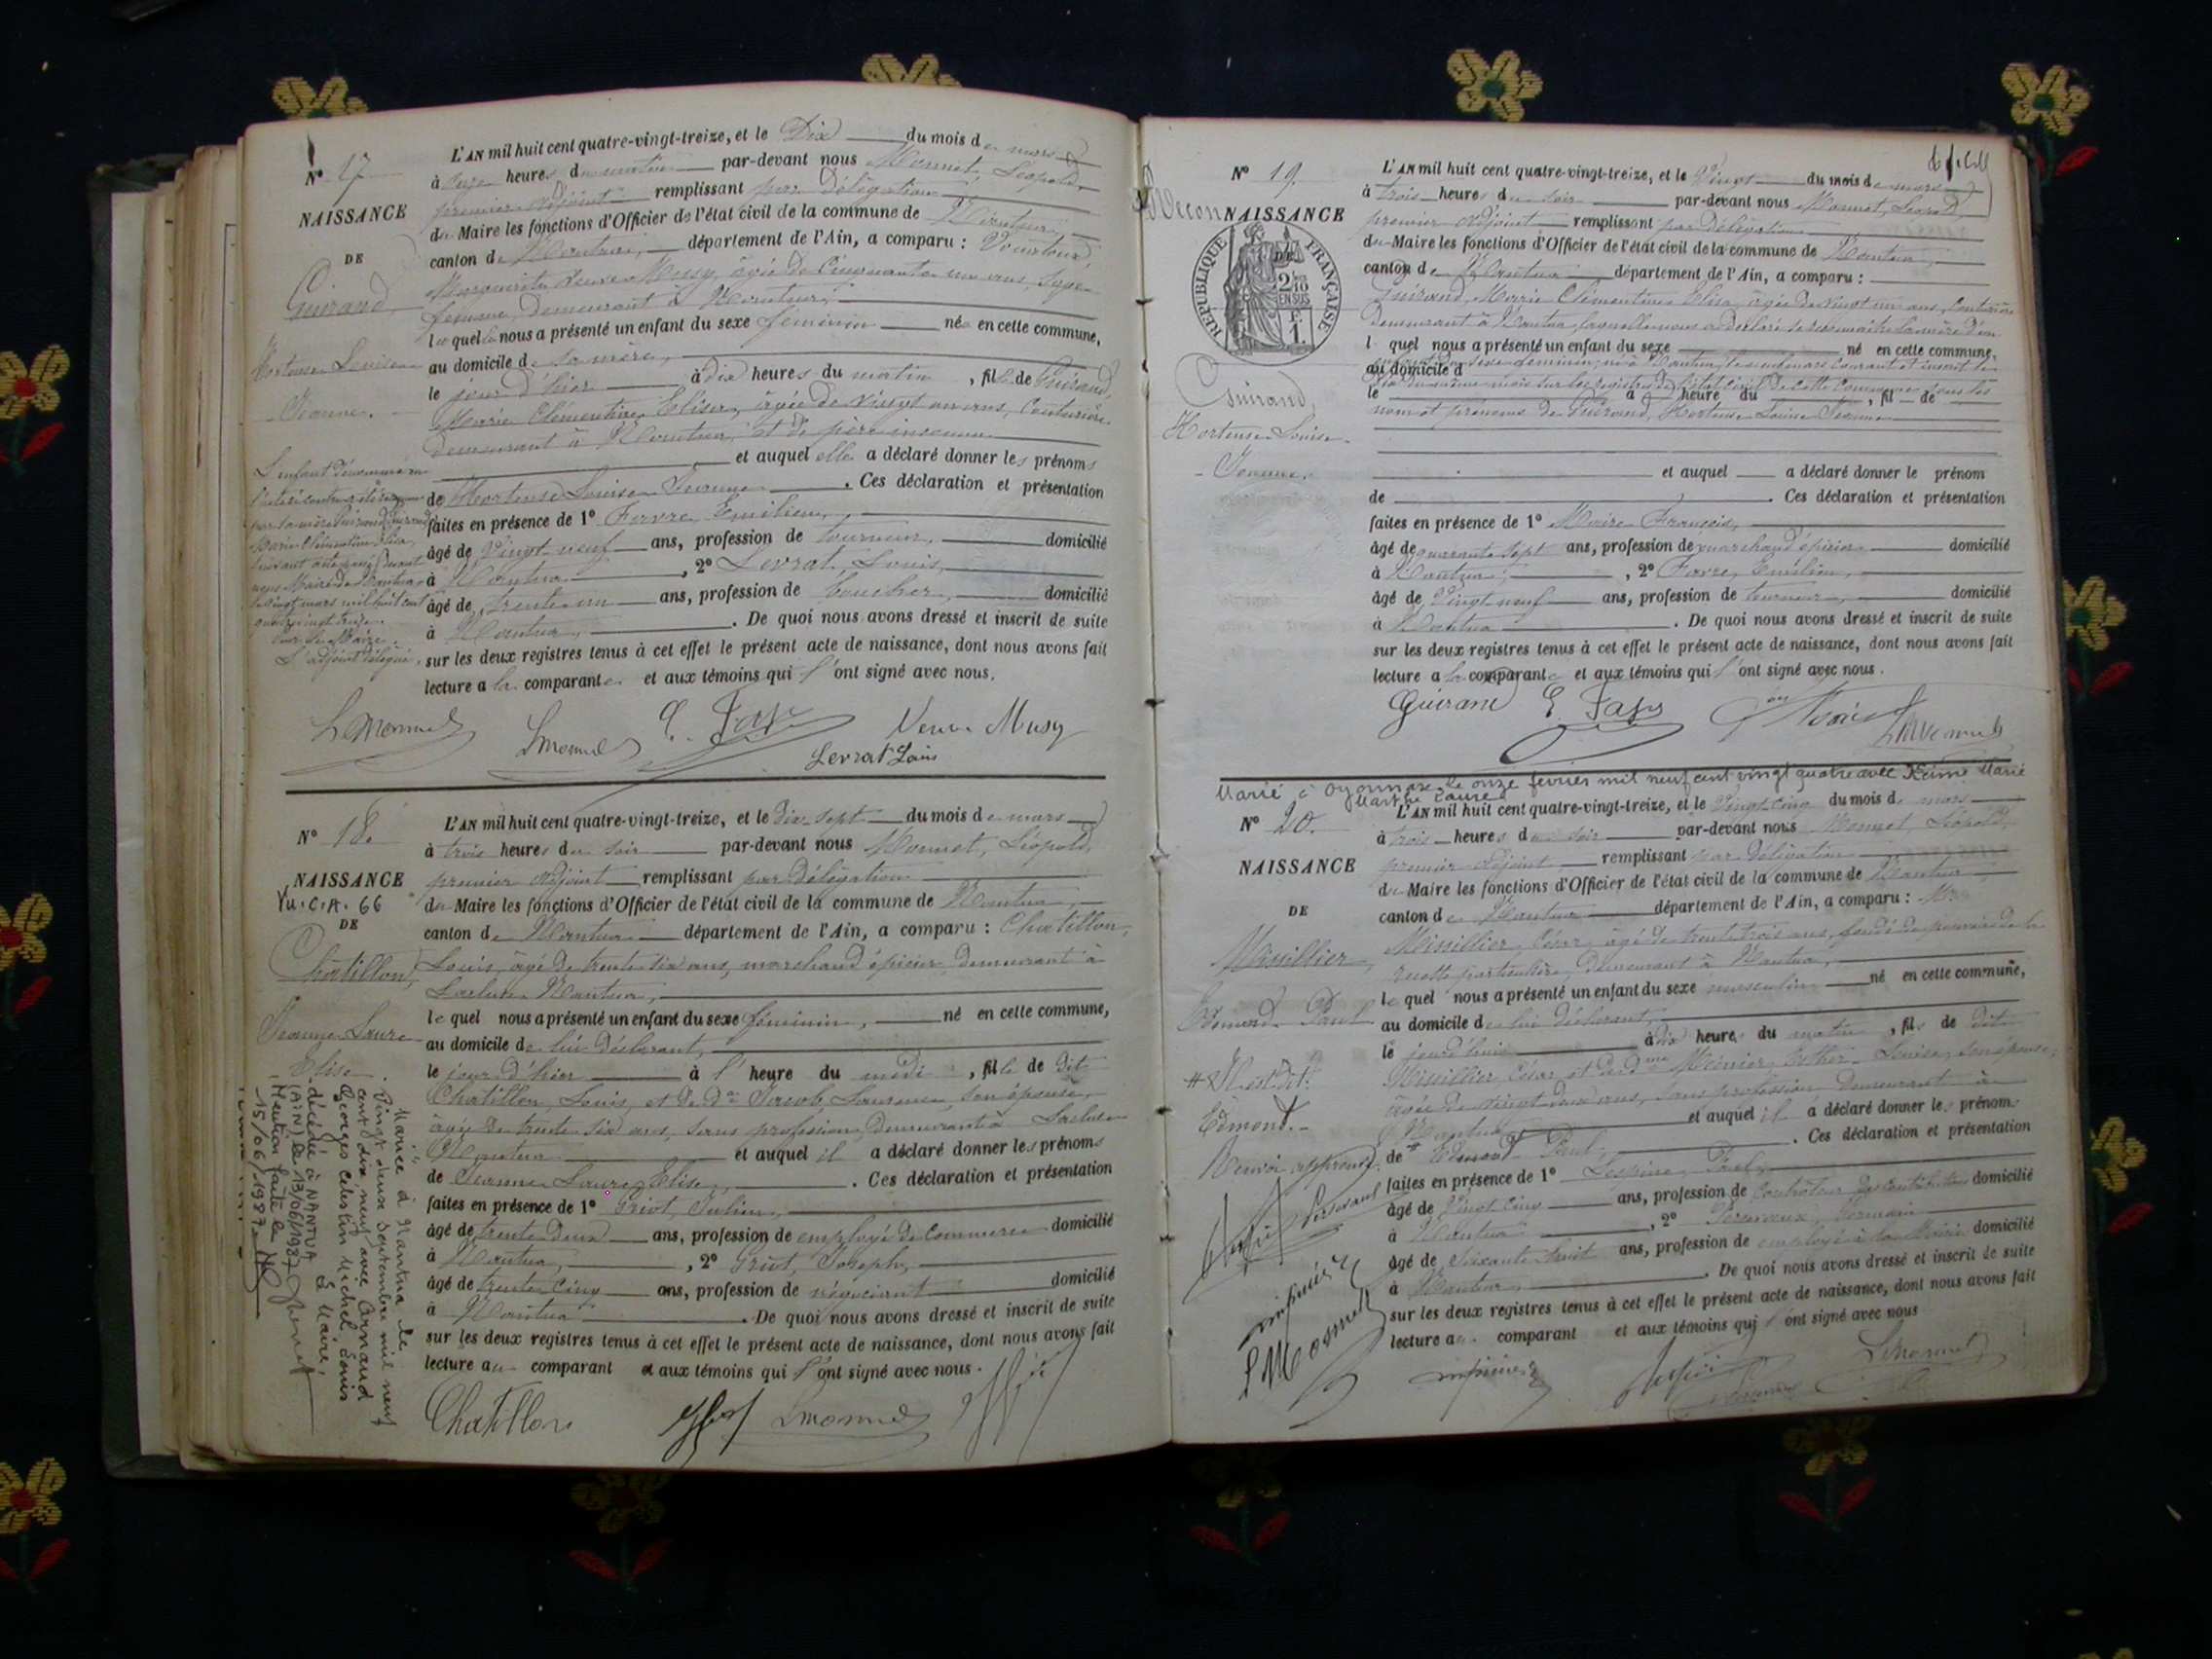 N° 17
NAISSANCE
DE
Guirand
Hortense Louise
Jeanne.
L'AN mil huit cent quatre-vingt-treize, et le Dix du mois de mars
à onze heures du matin par-devant nous Monnet, Léopold,
premier adjoint remplissant par délégation
du Maire les fonctions d'Officier de l'état civil de la commune de Nantua,
canton de Nantua, département de l'Ain, a comparu :
Marguerite veuve Musy, âgée de Cinquante un ans, Sage
femme, demeurant à Nantua,
laquelle nous a présenté un enfant du sexe féminin né en cette commune,
au domicile de sa mère,
le jour d'hier à dix heures du matin, fille de Guirand,
Marie Clémentine Elisa, âgée de vingt un ans, Couturière
demeurant à Nantua, et de père inconnu
et auquel elle a déclaré donner les prénoms
de Hortense Louise Jeanne. Ces déclaration et présentation
faites en présence de 1° Favre Emilien,
âgé de Vingt neuf ans, profession de tourneur, domicilié
à Nantua, 2° Levrat, Louis,
âgé de trente un ans, profession de boucher, domicilié
à Nantua, . De quoi nous avons dressé et inscrit de suite
sur les deux registres tenus à cet effet le présent acte de naissance, dont nous avons fait
lecture a la comparante et aux témoins qui l'ont signé avec nous.
L'enfant dénommé en
l'acte ci-contre a été reconnu
par sa mère Guirand
Marie Clémentine Elisa,
suivant acte passé devant
nous Maire de Nantua
le vingt mars mil huit cent
quatre vingt treize.
Pour le Maire,
L'adjoint délégué,
LMonnet
LMonnet E. Favre Veuve Musy
Levrat Louis
N° 18
NAISSANCE
Vu. C.A. 66
DE
Chatillon,
Jeanne Laure
Elise.
L'AN mil huit cent quatre-vingt-treize, et le dix sept du mois de mars
à trois heures du soir par-devant nous Monnet, Léopold,
premier adjoint remplissant par délégation
du Maire les fonctions d'Officier de l'état civil de la commune de Nantua,
canton de Nantua département de l'Ain, a comparu : Chatillon,
Louis, âgé de trente six ans, marchand épicier, demeurant à
Lacluse Nantua,
lequel nous a présenté un enfant du sexe féminin, né en cette commune,
au domicile de lui déclarant,
le jour d'hier à l' heure du midi, fille de dit
Chatillon, Louis, et de De Jacob Laurence, son épouse,
âgée de trente six ans, sans profession, demeurant à Lacluse
Nantua et auquel il a déclaré donner les prénoms
de Jeanne Laure Elise, . Ces déclaration et présentation
faites en présence de 1° Griot, Julien,
âgé de trente deux ans, profession de employé de Commerce domicilié
à Nantua, 2° Griot, Joseph,
âgé de trente cinq ans, profession de négociant domicilié
à Nantua . De quoi nous avons dressé et inscrit de suite
sur les deux registres tenus à cet effet le présent acte de naissance, dont nous avons fait
lecture au comparant et aux témoins qui l'ont signé avec nous.
Mariée à Nantua le
vingt deux septembre mil neuf
cent dix neuf avec Arnaud
Georges Célestin Michel Louis
décédée à NANTUA
(AIN) le 13/06/1987
Mention faite le
15/06/1987
Le Maire,
Chatillon LMonnet
N° 19.
NAISSANCE
RÉPUBLIQUE FRANÇAISE
DE
2/10
EN SUS
1F.
Guirand,
Hortense Louise
Jeanne.
L'AN mil huit cent quatre-vingt-treize, et le Vingt du mois de mars
à trois heures du soir par-devant nous Monnet, Léopold,
premier adjoint remplissant par délégation
du Maire les fonctions d'Officier de l'état civil de la commune de Nantua,
canton de Nantua département de l'Ain, a comparu :
Guirand, Marie Clémentine Elisa, âgée de vingt un ans, Couturière
demeurant à Nantua, laquelle nous a déclaré se reconnaître la mère d'un
l quel nous a présenté un enfant du sexe né en cette commune,
enfant du sexe féminin, né à Nantua, le neuf mars courant et inscrit le
au domicile d
dix du même mois sur les registres de l'état civil de cette Commune, sous les
le à heure du , fil de
nom et prénoms de Guirand, Hortense Louise Jeanne
et auquel a déclaré donner le prénom
de . Ces déclaration et présentation
faites en présence de 1° Maire François,
âgé de quarante sept ans, profession de marchand épicier domicilié
à Nantua, 2° Favre, Emilien,
âgé de Vingt neuf ans, profession de tourneur, domicilié
à Nantua . De quoi nous avons dressé et inscrit de suite
sur les deux registres tenus à cet effet le présent acte de naissance, dont nous avons fait
lecture a la comparante et aux témoins qui l'ont signé avec nous.
Guirand E Favre LMonnet
Marié à Oyonnax le onze février mil neuf cent vingt quatre avec Marie
Marthe Laure
N° 20.
NAISSANCE
DE
Missillier,
Edmond Paul
# Il est dit:
Edmond.
Renvoi approuvé
L'AN mil huit cent quatre-vingt-treize, et le Vingt cinq du mois de mars
à trois heures du soir par-devant nous Monnet, Léopold,
premier adjoint remplissant par délégation
du Maire les fonctions d'Officier de l'état civil de la commune de Nantua,
canton de Nantua département de l'Ain, a comparu : Mr
Missillier, César, âgé de trente trois ans, fondé de pouvoirs de la
recette particulière, demeurant à Nantua,
lequel nous a présenté un enfant du sexe masculin né en cette commune,
au domicile de lui déclarant,
le jourd'hui à dix heures du matin, fils de dit
Missillier César, et de dme Meunier, Esther Louise, son épouse,
âgée de vingt deux ans, sans profession, demeurant à
Nantua et auquel il a déclaré donner les prénoms
de # Edmond Paul, . Ces déclaration et présentation
faites en présence de 1° Lespine, Paul,
âgé de Vingt cinq ans, profession de Contrôleur des Contributions domicilié
à Nantua, 2°
âgé de Soixante huit ans, profession de employé à la Mairie domicilié
à Nantua, . De quoi nous avons dressé et inscrit de suite
sur les deux registres tenus à cet effet le présent acte de naissance, dont nous avons fait
lecture au comparant et aux témoins qui l'ont signé avec nous
LMonnet
LMonnet